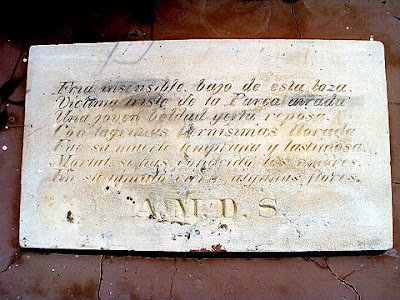 Fria insensible bajo de esta loza.
Victima triste de la Parca airada
Una joven beldad yerta reposa.
Con lagrimas ternisimas llorada
Fue su muerte temprana y lastimosa.
Mortal si has conocido los amores.
En su tumulo vierte algunas flores.
A.M.D.S.